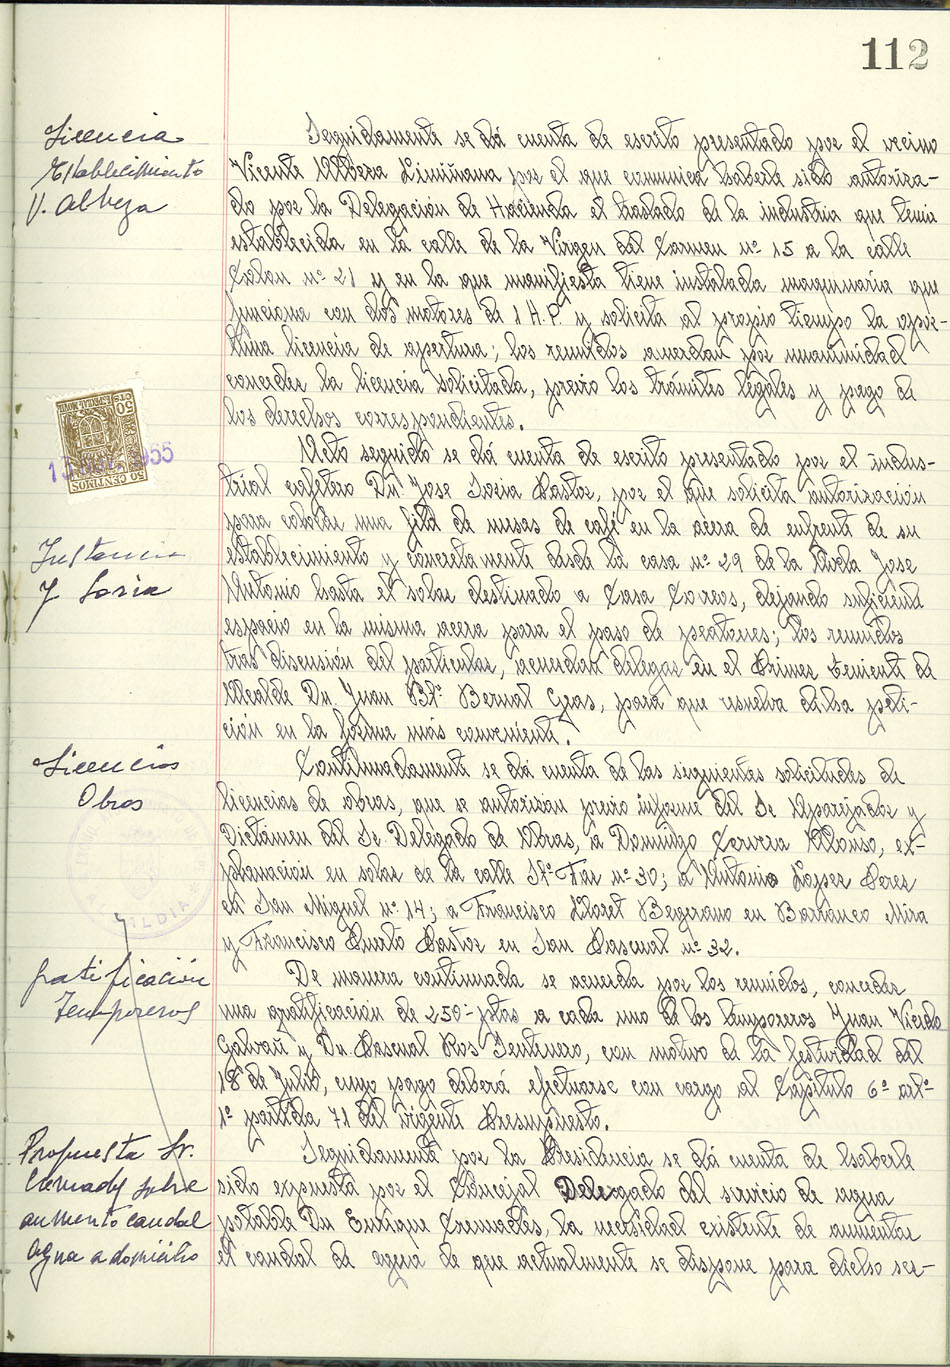 112
Licencia
Establecimiento
V. Albeza
Seguidamente se dá cuenta de escrito presentado por el vecino
Vicente Albera Limiñana por el que comunica haberle sido autoriza-
do por la Delegación de Hacienda el traslado de la industria que tenia
establecida en la calle de la Virgen del Carmen nº 15 a la calle
Colon nº 21 y en la que manifiesta tiene instalada maquinaria que
funciona con dos motores de 1 H.P. y solicita al propio tiempo la opor-
tuna licencia de apertura; los reunidos acuerdan por unanimidad
conceder la licencia solicitada, previo los trámites legales y pago de
los derechos correspondientes.
50 CTS ESPECIAL MOVIL
50 CENTIMOS
1955
Instancia
J Soria
Acto seguido se dá cuenta de escrito presentado por el indus-
trial cafetero Dn. Jose Soria Pastor, por el que solicita autorización
para colocar una fila de mesas de café en la acera de enfrente de su
establecimiento y concretamente desde la casa nº 29 de la Avda Jose
Antonio hasta el solar destinado a Casa Correos, dejando suficiente
espacio en la misma acera para el paso de peatones; los reunidos
tras discusión del particular, acuerdan delegar en el Primer Teniente de
Alcalde Dn. Juan Btª Bernal Gras, para que resuelva dicha peti-
ción en la forma más conveniente.
Licencias
Obras
ALCALDIA
Continuadamente se dá cuenta de las siguientes solicitudes de
licencias de obras, que se autorisan previo informe del Sr Aparejador y
Dictámen del Sr. Delegado de Obras, a Domingo Cervera Alonso, ex-
planación en solar de la calle Stª Faz nº 30; a Antonio Lopez Perez
en San Miguel nº 14; a Francisco Lloret Begerano en Barranco Mira
y Francisco Puerto Pastor en San Pascual nº 32.
gratificación
Temporeros
De manera continuada se acuerda por los reunidos, conceder
una gratificación de 250- ptas a cada uno de los temporeros Juan Vicedo
Galvañ y Dn. Pascual Ros Sentenero, con motivo de la festividad del
18 de Julio, cuyo pago deberá efectuarse con cargo al Capítulo 6º artº
1º partida 71 del vigente Presupuesto.
Propuesta Sr.
Cremades sobre
aumento caudal
agua a domicilio
Seguidamente por la Presidencia se dá cuenta de haberle
sido expuesta por el Concejal Delegado del servicio de agua
potable Dn Enrique Cremades, la necesidad existente de aumentar
el caudal de agua de que actualmente se dispone para dicho ser-